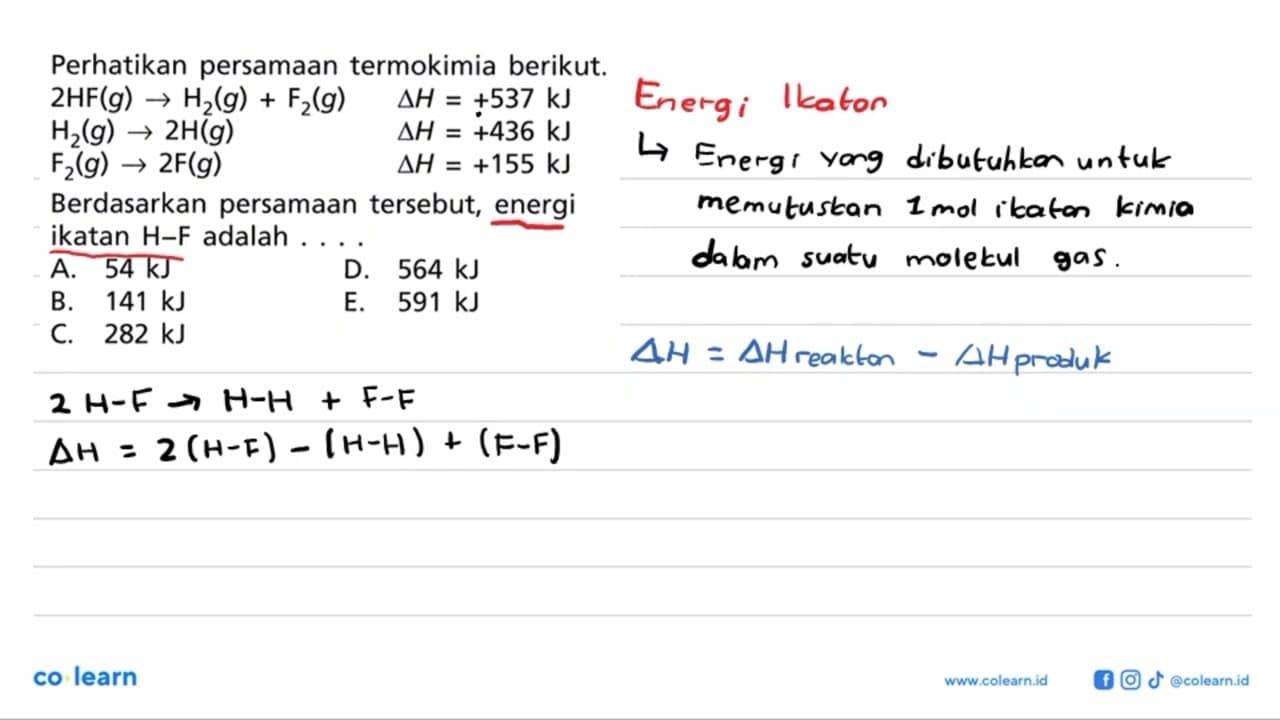 Perhatikan persamaan termokimia berikut.
2HF(g) → H₂(g) + F₂(g) ΔH = +537 kJ
H₂(g) → 2H(g) ΔH = +436 kJ
F₂(g) → 2F(g) ΔH = +155 kJ
Berdasarkan persamaan tersebut, energi
ikatan H–F adalah . . . .
A. 54 kJ D. 564 kJ
B. 141 kJ E. 591 kJ
C. 282 kJ
Energi Ikatan
↳ Energi yang dibutuhkan untuk
memutuskan 1 mol ikatan kimia
dalam suatu molekul gas.
ΔH = ΔH reaktan - ΔH produk
2 H-F → H-H + F-F
ΔH = 2(H-F) - (H-H) + (F-F)
co learn
www.colearn.id @colearn.id